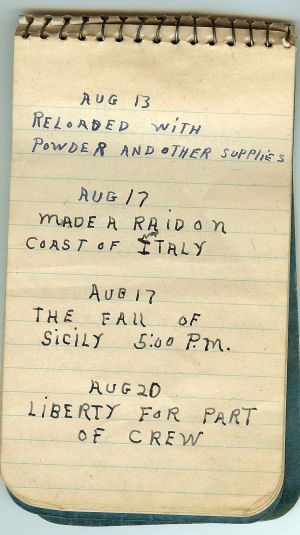 AUG 13
RELOADED WITH
POWDER AND OTHER SUPPLIES
AUG 17
MADE A RAID ON
COAST OF ITALY
AUG 17
THE FALL OF
SICILY 5:00 P.M.
AUG 20
LIBERTY FOR PART
OF CREW